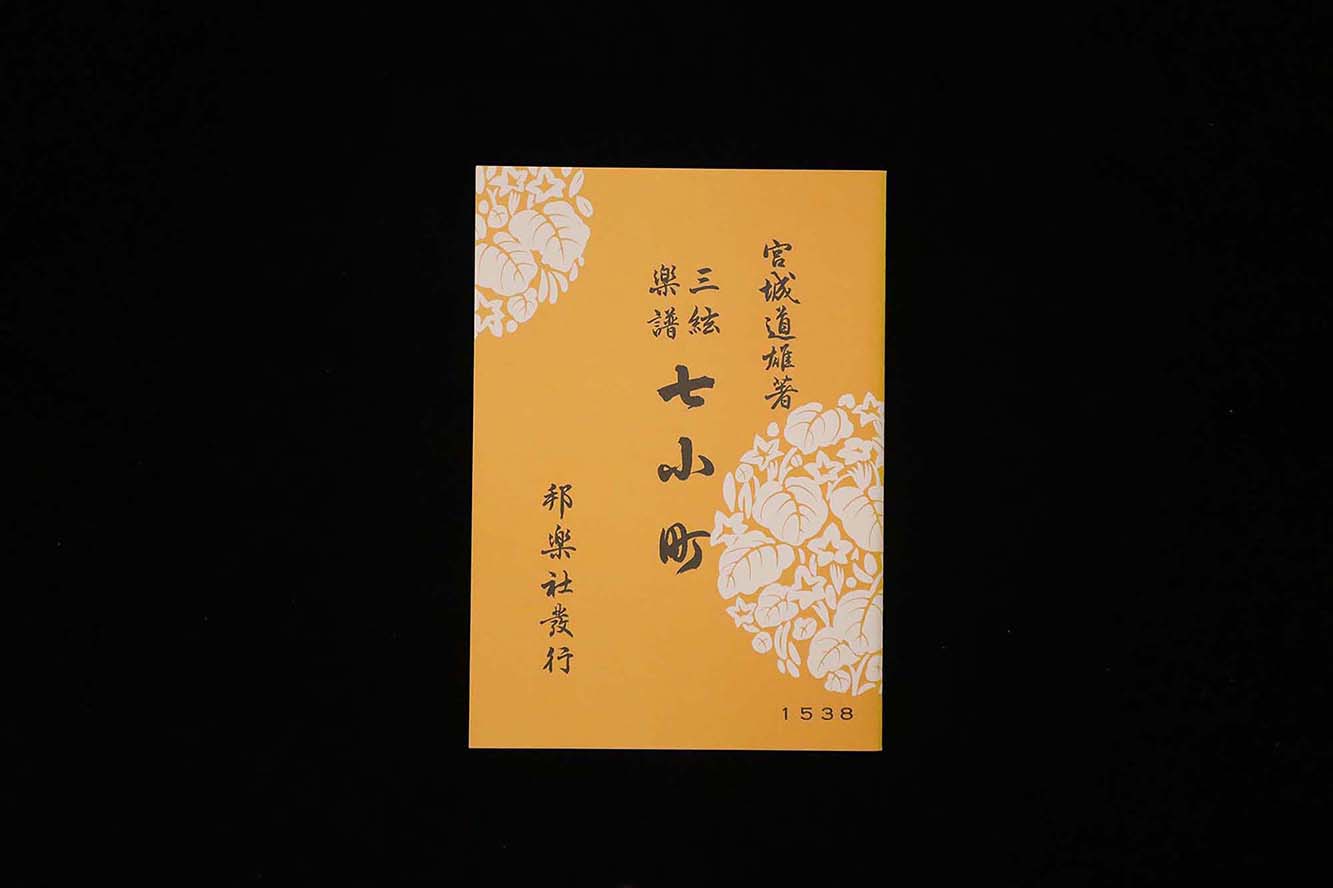 宮城道雄著
三絃
楽譜
七小町
邦楽社發行
1538